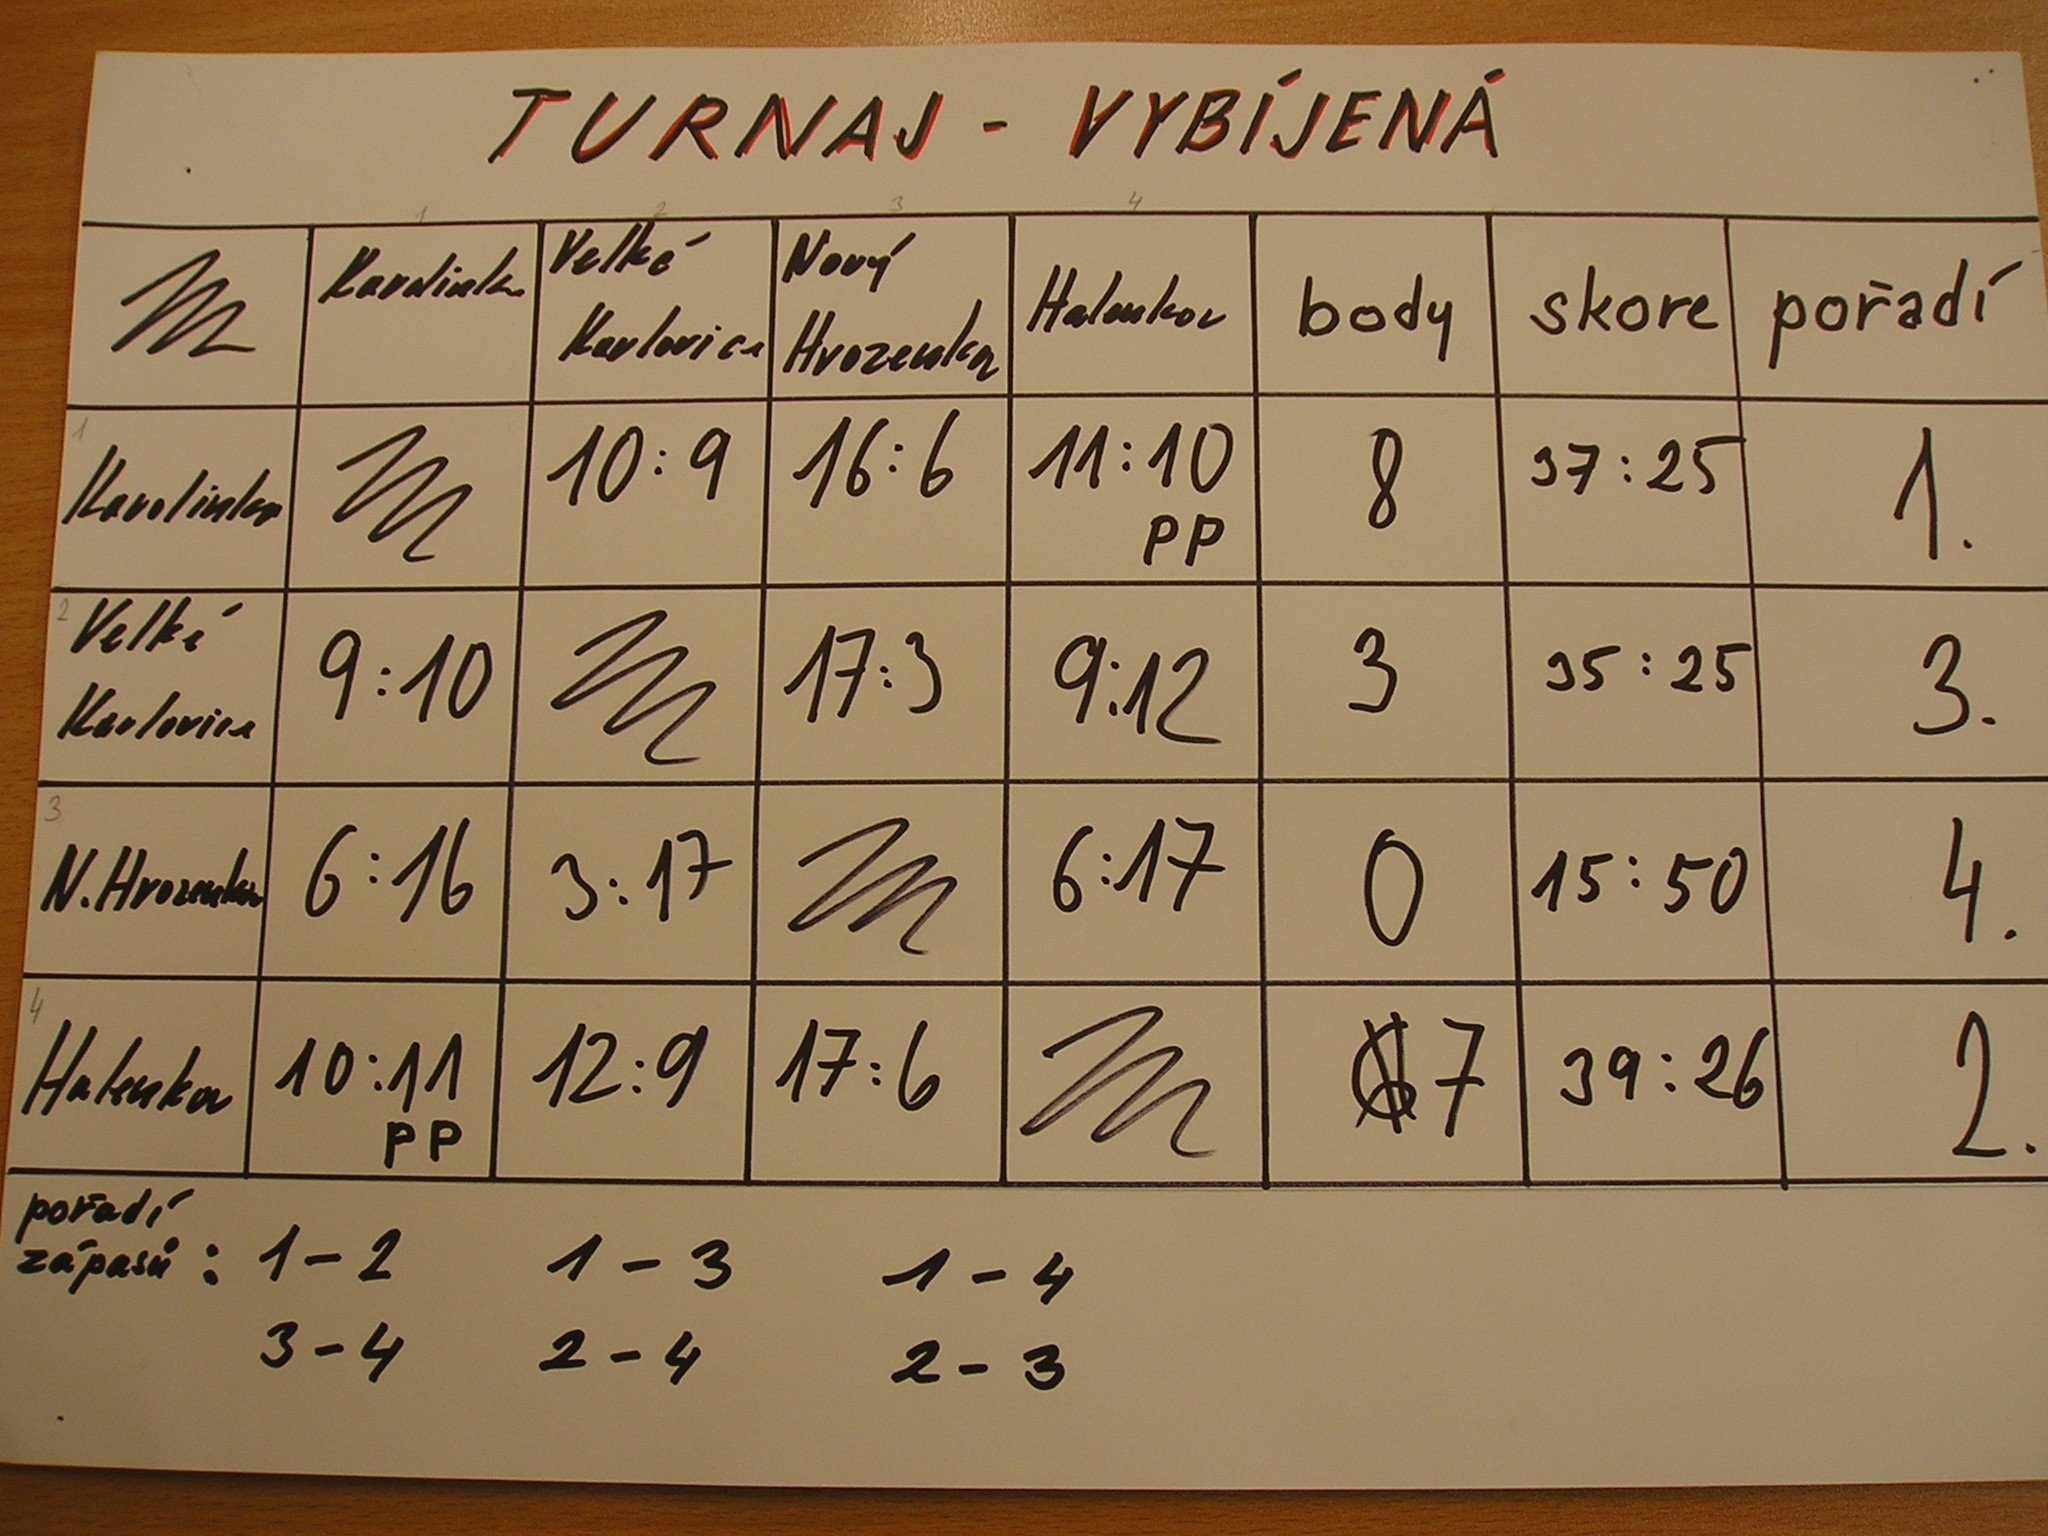 TURNAJ - VYBÍJENÁ
1 2 3 4
Karolinka Velké Karlovice Nový Hrozenkov Halenkov body skore pořadí
1 Karolinka 10:9 16:6 11:10 PP 8 37:25 1.
2 Velké Karlovice 9:10 17:3 9:12 3 35:25 3.
3 N. Hrozenkov 6:16 3:17 6:17 0 15:50 4.
4 Halenkov 10:11 PP 12:9 17:6 7 39:26 2.
pořadí
zápasů: 1-2 1-3 1-4
3-4 2-4 2-3